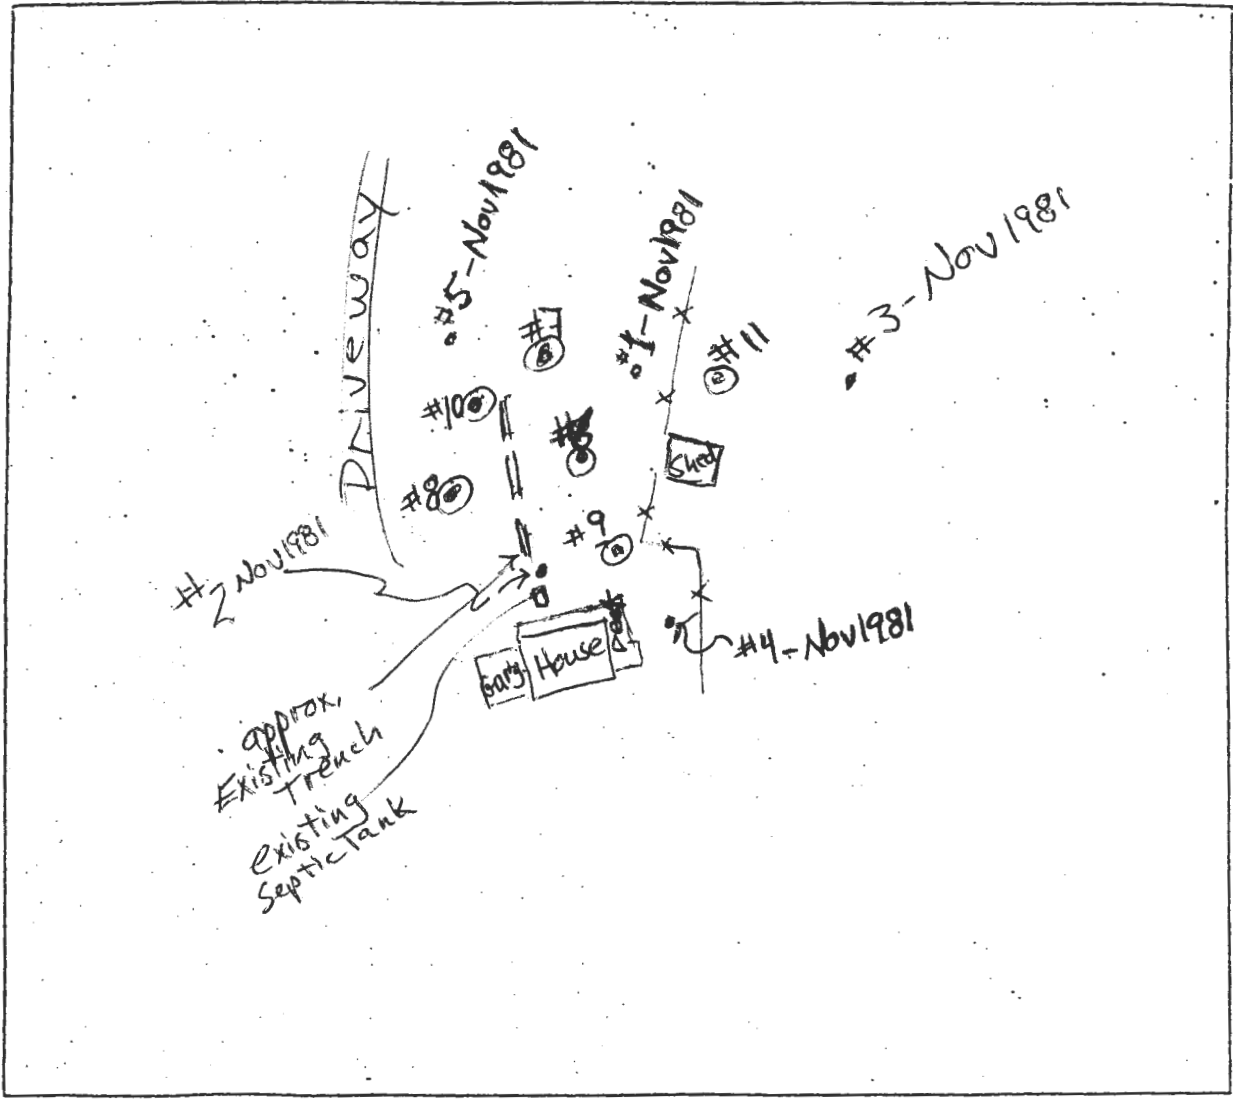 Driveway
#5-Nov1981
#7
#1-Nov1981
#11
#3-Nov1981
#10
Shed
#8
#9
#2 Nov1981
#4-Nov1981
House
approx.
Existing
Trench
existing
Septic Tank